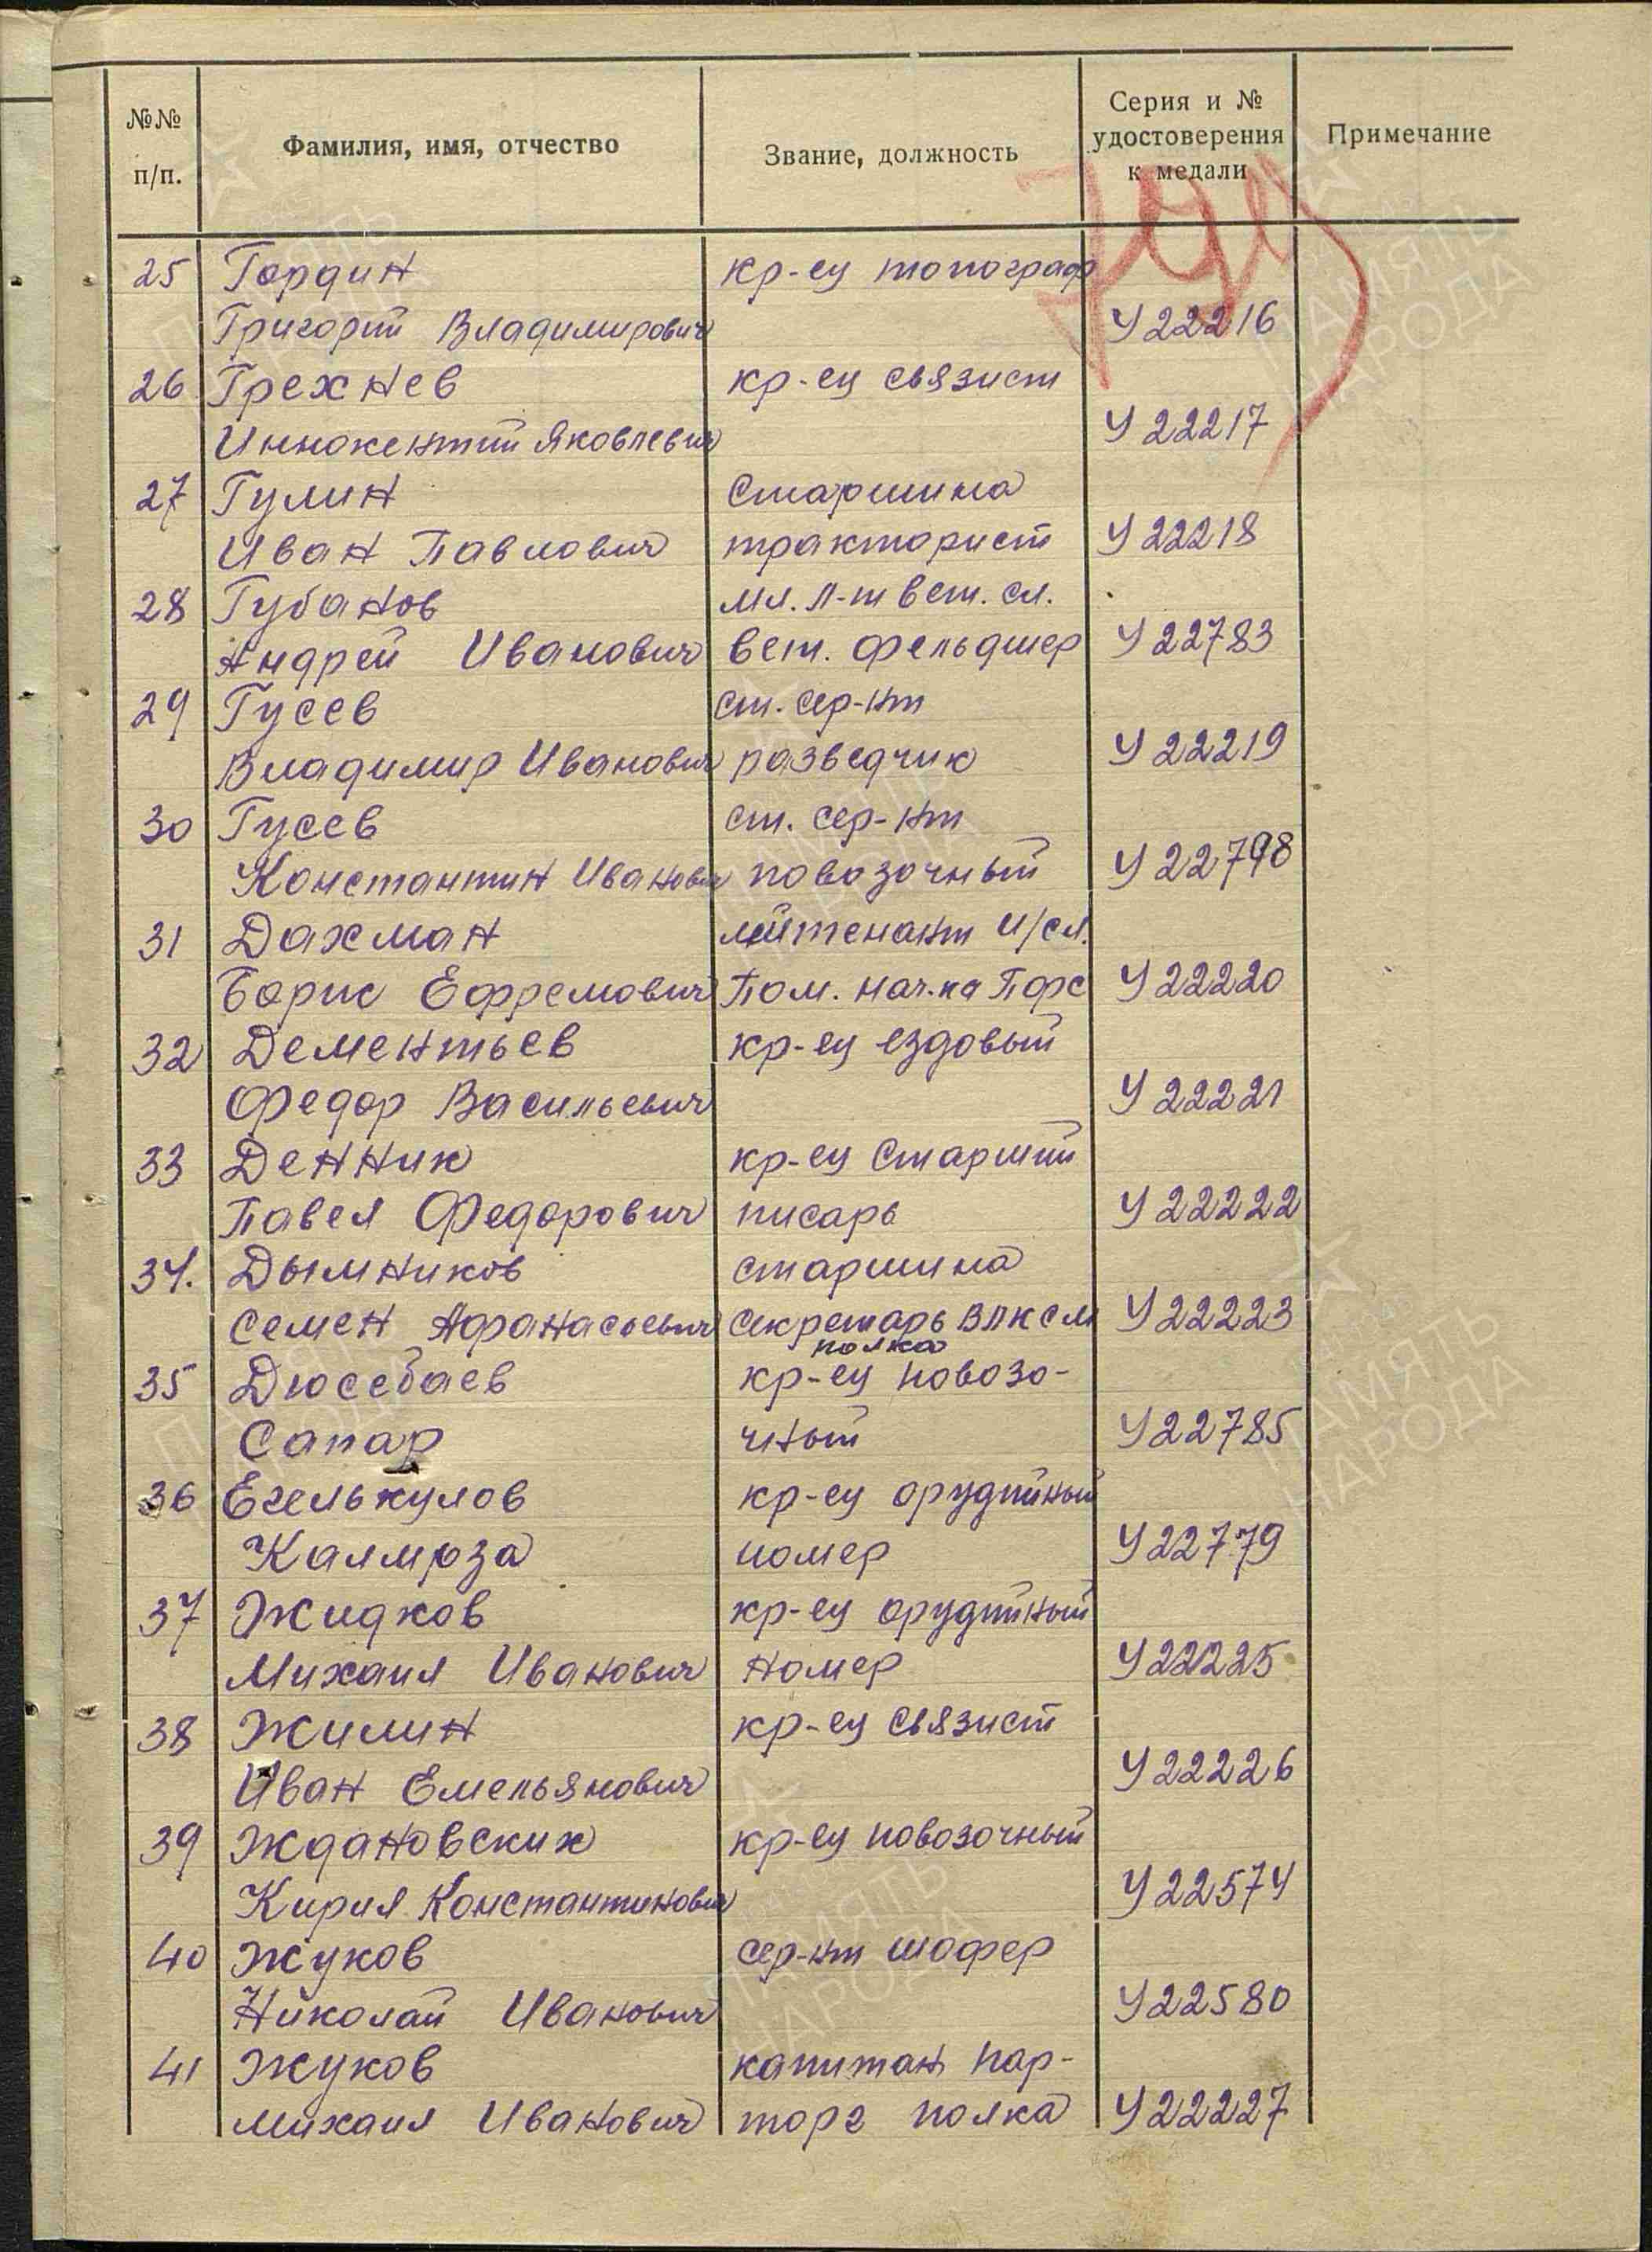 №№ п/п.
Фамилия, имя, отчество
Звание, должность
Серия и № удостоверения к медали
Примечание
25 Гордин кр-ец топограф
Григорий Владимирович У 22216
26 Грехнев кр-ец связист
Иннокентий Яковлевич У 22217
27 Гулин Старшина
Иван Павлович тракторист У 22218
28 Губанов мл. л-т вет. сл.
Андрей Иванович вет. фельдшер У 22783
29 Гусев ст. сер-нт
Владимир Иванович разведчик У 22219
30 Гусев ст. сер-нт
Константин Иванович повозочный У 22798
31 Дахман лейтенант и/сл.
Борис Ефремович Пом. нач-ка Пфс У 22220
32 Дементьев кр-ец ездовый
Федор Васильевич У 22221
33 Денник кр-ец Старший
Павел Федорович писарь У 22222
34. Дымников старшина
Семен Афанасьевич Секретарь ВЛКСМ У 22223
полка
35 Дюсебаев кр-ец повозо-
Сапар чный У 22785
36 Егелькулов кр-ец орудийный
Калмрза номер У 22779
37 Жидков кр-ец орудийный
Михаил Иванович номер У 22225
38 Жилин кр-ец связист
Иван Емельянович У 22226
39 Ждановских кр-ец повозочный
Кирил Константинович У 22574
40 Жуков сер-нт шофер
Николай Иванович У 22580
41 Жуков капитан пар-
Михаил Иванович торг полка У 22227
ПАМЯТЬ
НАРОДА